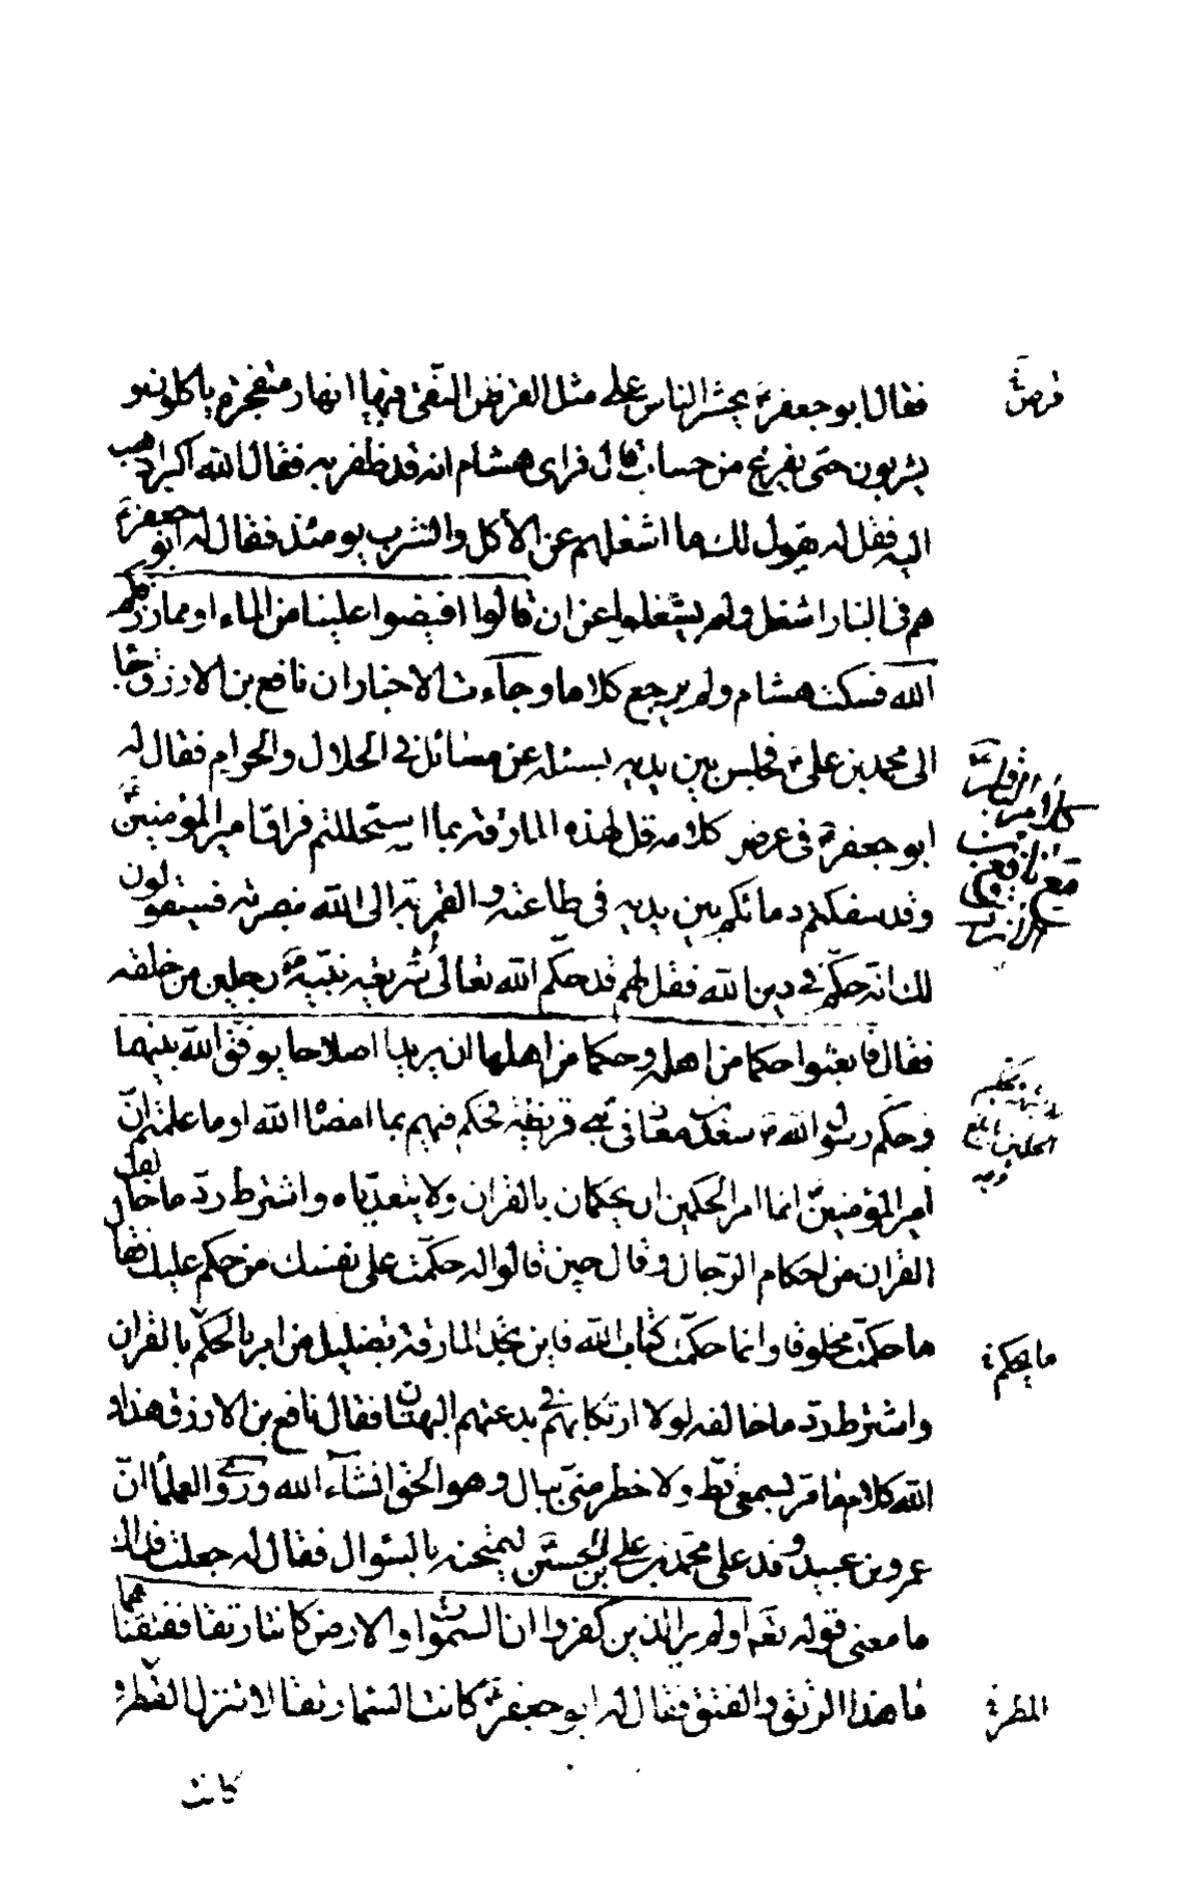 فقال ابو جعفر ع يحشر الناس على مثل القرص النقى فيها انهار متفجرة ياكلون و
يشربون حتى يفرغ من حساب قال فراى هشام انه قد ظفر به فقال الله اكبر اذهب
اليه فقل له يقول لك ما اشغلهم عن الاكل والشرب يومئذ فقال له ابو جعفر ع
هم فى النار اشغل ولم يشغلوا عن ان قالوا افيضوا علينا من الماء او مما رزقكم
الله فسكت هشام ولم يرجع كلاما وجاءت الاخبار ان نافع بن الازرق جا
الى محمد بن على ع فجلس بين يديه يسئله عن مسائل فى الحلال والحرام فقال له
ابو جعفر ع فى عرض كلامه قل لهذه المارقة بما استحللتم فراق امير المؤمنين ع
وقد سفكتم دمائكم بين يديه فى طاعته والقربة الى الله بنصرته فسيقولون
لك انه حكم فى دين الله فقل لهم قد حكم الله تعالى فى شريعة نبيه ص رجلين من خلقه
فقال فابعثوا حكما من اهله وحكما من اهلها ان يريدا اصلاحا يوفق الله بينهما
وحكم رسول الله ص سعد بن معاذ فى بنى قريظة فحكم فيهم بما امضاه الله او ما علمتم ان
امير المؤمنين ع انما امر الحكمين ان يحكمان بالقران ولا يتعدياه واشترط رد ما خالف
القران من احكام الرجال وقال حين قالوا له حكمت على نفسك من حكم عليك فقال
ما حكمت مخلوقا وانما حكمت كتاب الله فاين تجد المارقة تضليل من امر بالحكم بالقران
واشترط رد ما خالفه لولا ارتكابهم فى بدعتهم البهتان فقال نافع بن الازرق هذا و
الله كلام ما مر بسمعى قط ولا خطر منى ببال وهو الحق انشاء الله وروى العلماء ان
عمرو بن عبيد وفد على محمد بن على بن الحسين ع ليمتحنه بالسئوال فقال له جعلت فداك
ما معنى قوله تعم اولم ير الذين كفروا ان السموات والارض كانتا رتقا ففتقناهما
ما هذا الرتق والفتق فقال له ابو جعفر ع كانت السماء رتقا لا تنزل القطر و
كانت
قرصة
كلام الباقر ع
مع نافع بن
الازرق
ما يحكم
المطر